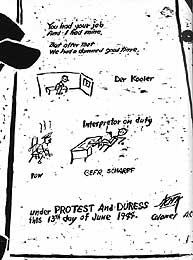 You had your job
And I had mine,
But after that
We had a damned good time.
Der Kooler
Interpretor on duty
POW
GEFR. SCHARPF
Under PROTEST And DURESS
this 13th day of June 1945.
Colonel A.C